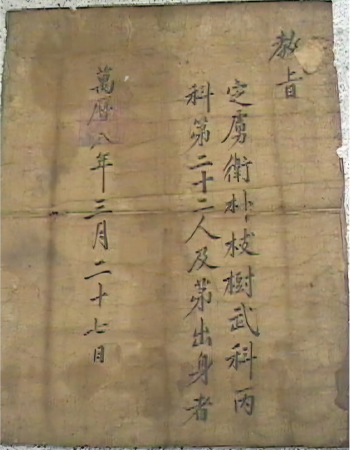 教旨
定虜衛朴枝樹武科丙
科第二十二人及第出身者
萬曆八年三月二十七日